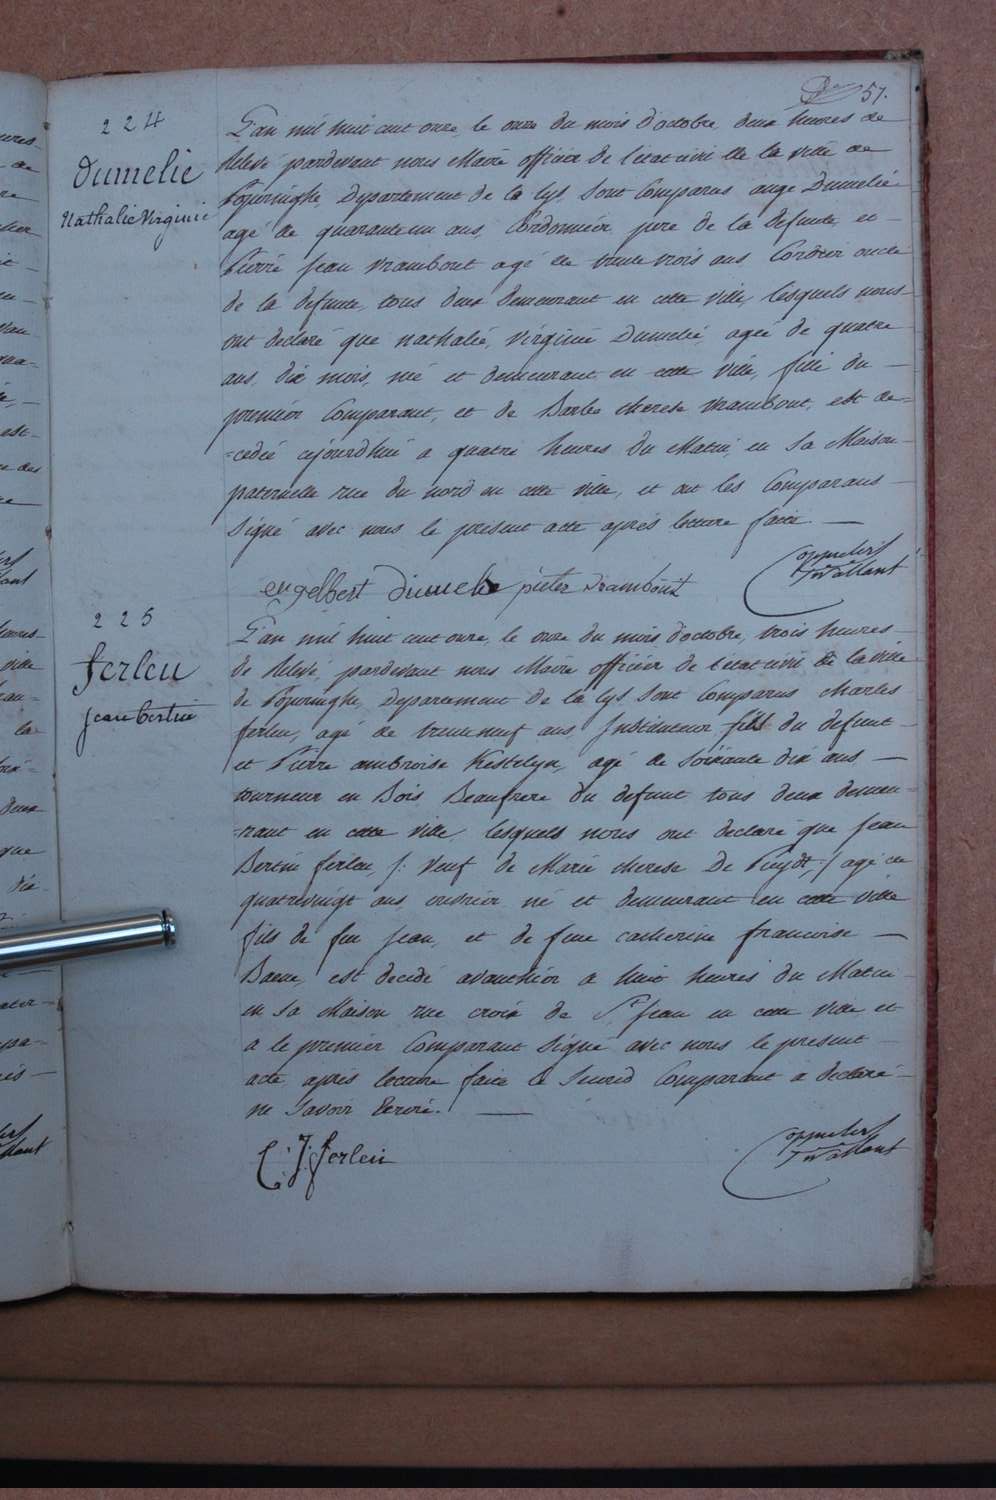 57.
224
Dumelie
Nathalie Virginie
L'an mil huit cent onze, le onze du mois d'octobre, deux heures de
Relevé pardevant nous Maire officier de l'état civil de la ville de
Poperinghe, Departement de la Lys, Sont Comparus ange Dumelié
agé de quarante un ans, Cordonnier, pere de la defunte, et —
Pierre Jean Vrambout agé de trente trois ans Cordier oncle
de la defunte, tous deux demeurant en cette ville, lesquels nous
ont declaré que nathalie, virginie Dumelié, ageé de quatre
ans, dix mois, né et demeurant en cette ville, fille du —
premier Comparant, et de Barbe therese vrambout, est de=
=cedeé ajourd'hui a quatre heures du Matin, en Sa Maison
paternelle rue du nord en cette ville, et ont les Comparans
Signé avec nous le présent acte après lecture faite —
engelbert Dumelie pieter Vrambout
225
ferleu
Jean bertin
L'an mil huit cent onze, le onze du mois d'octobre, trois heures
de Relevé, pardevant nous Maire officier de l'état civil de la ville
de Poperinghe, Departement de la Lys Sont Comparus Charles
ferleu, agé de trente neuf ans, Instituteur fils du defunt
et Pierre ambroise Kestelyn, agé de soixante dix ans —
tourneur en Bois Beaufrere du defunt tous deux demeu=
=rant en cette ville, lesquels nous ont declaré que Jean
Bertin ferleu, /: Veuf de Marie therese De Puydt, :/ agé de
quatrevingt ans, ouvrier né et demeurant en cette ville
fils de feu Jean, et de feue catherine francoise —
est decedé avanthier a huit heures du Matin
en Sa Maison rue croix de St Jean en cette ville et
a le premier Comparant Signé avec nous le présent
acte après lecture faite le Second Comparant a declaré
ne Savoir Ecrire. —
C. J. ferleu